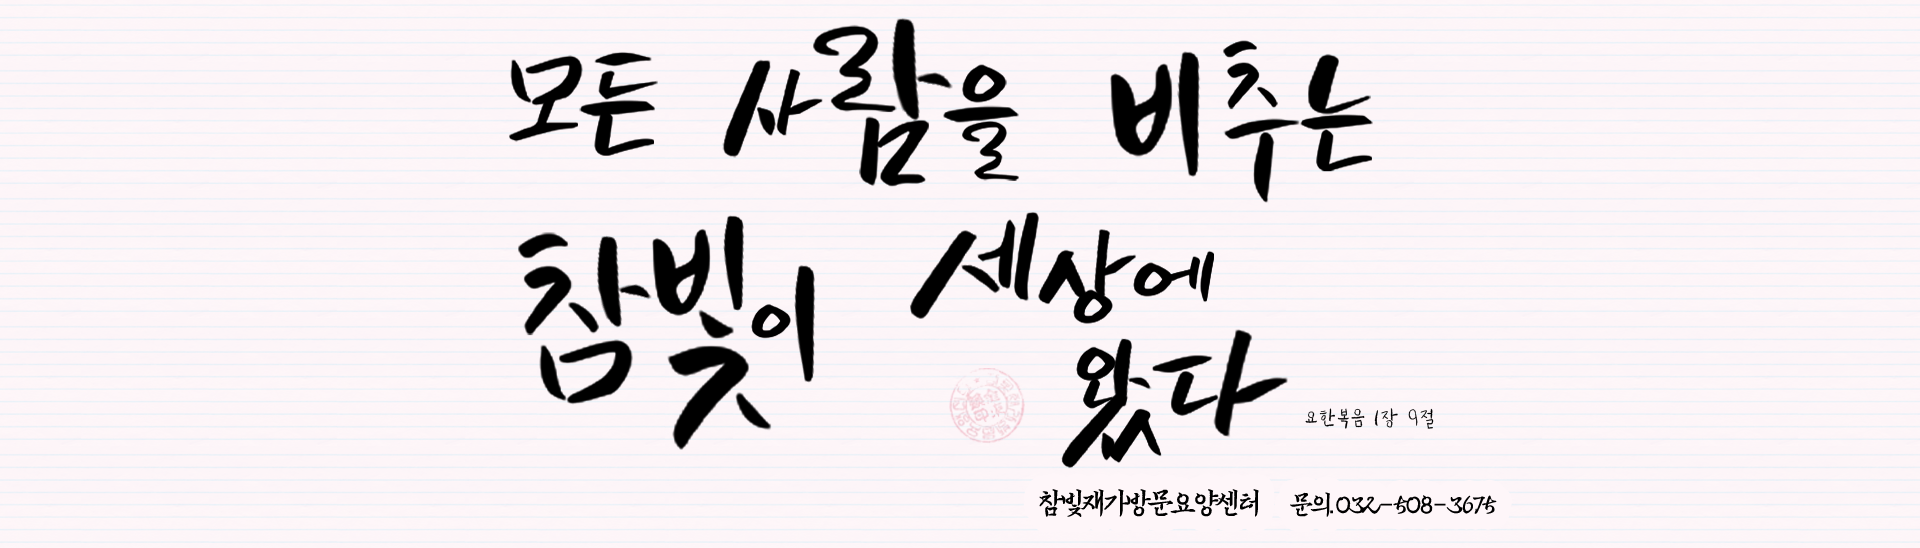 모든 사람을 비추는
참빛이 세상에
왔다
요한복음 1장 9절
참빛재가방문요양센터 문의.032-508-3675